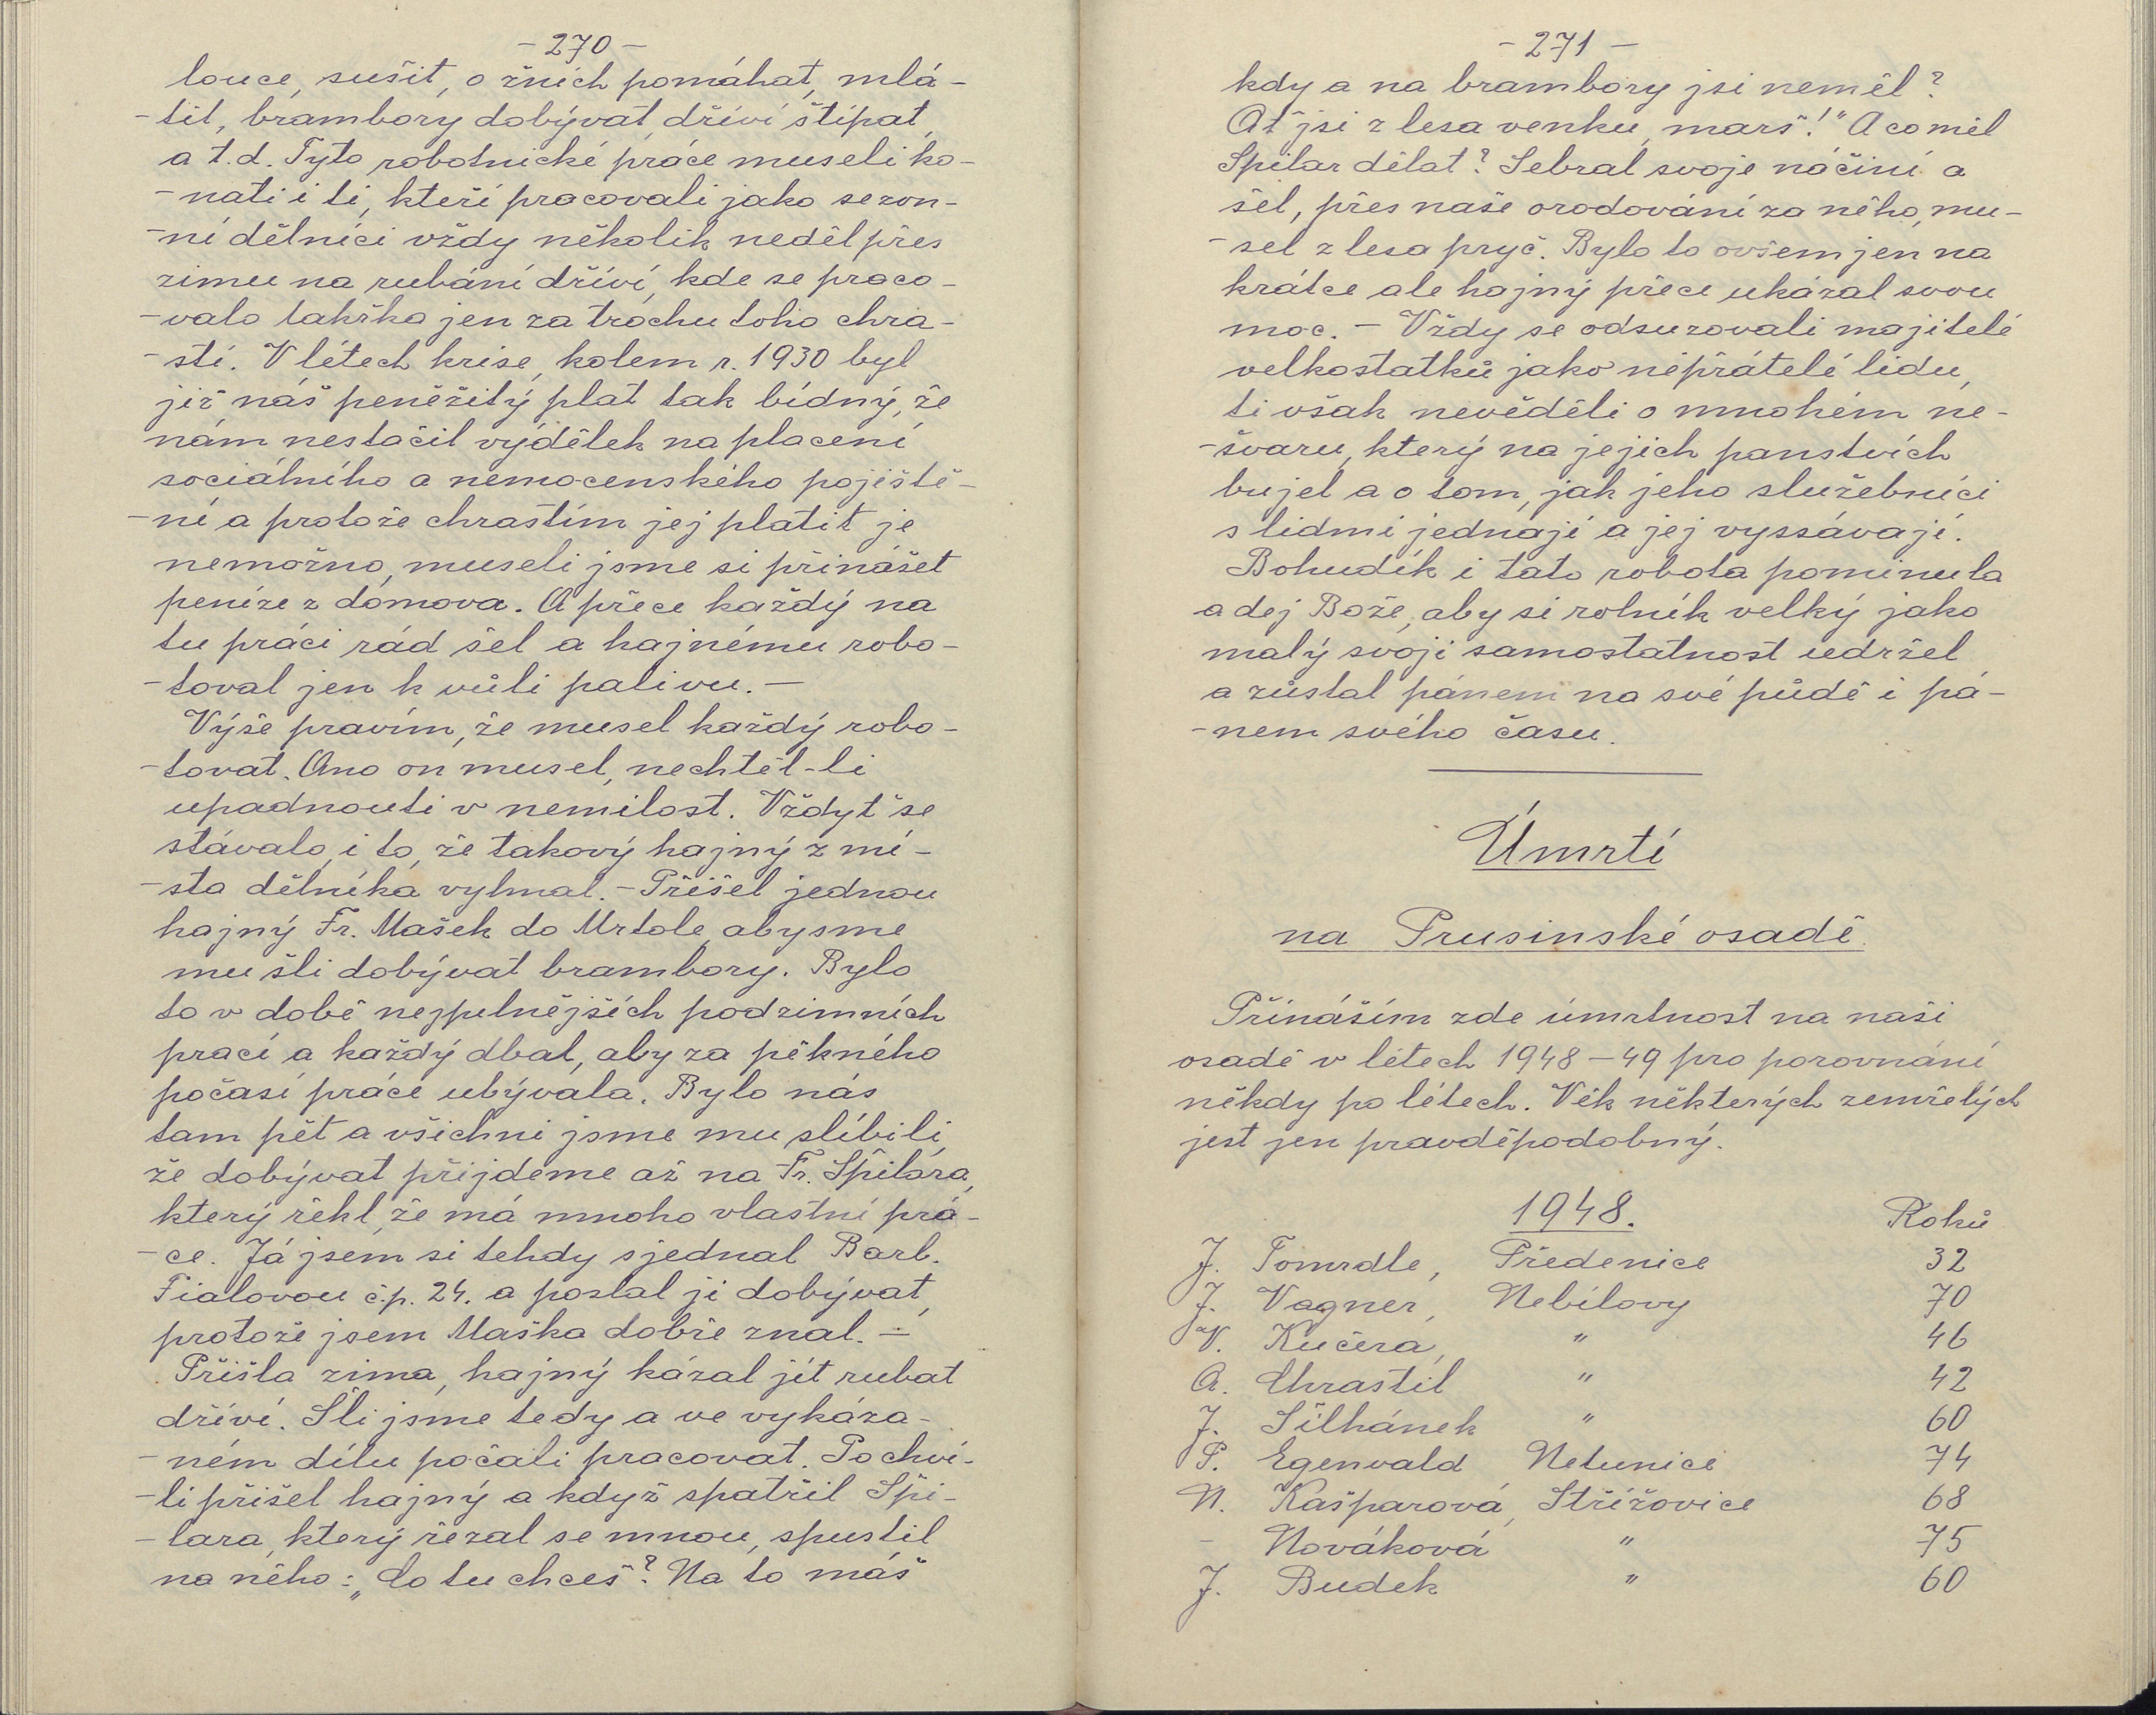 - 270 -
louce, sušit, o žních pomáhat, mlá-
-tit, brambory dobývat, dříví štípat,
a t.d. Tyto robotnické práce museli ko-
-nati i ti, kteří pracovali jako sezon-
-ní dělníci vždy několik neděl přes
zimu na rubání dříví, kde se praco-
-valo takřka jen za trochu toho chra-
-stí. V létech krise, kolem r. 1930 byl
již náš peněžitý plat tak bídný, že
nám nestačil výdělek na placení
sociálního a nemocenského pojiště-
-ní a protože chrastím jej platit je
nemožno, museli jsme si přinášet
peníze z domova. A přece každý na
tu práci rád šel a hajnému robo-
-toval jen k vůli palivu. -
Výše pravím, že musel každý robo-
-tovat. Ano on musel, nechtěl-li
upadnouti v nemilost. Vždyť se
stávalo i to, že takový hajný z mí-
-sta dělníka vyhnal. - Přišel jednou
hajný Fr. Mašek do Mrtole, abysme
mu šli dobývat brambory. Bylo
to v době nejpilnějších podzimních
prací a každý dbal, aby za pěkného
počasí práce ubývala. Bylo nás
tam pět a všichni jsme mu slíbili,
že dobývat přijdeme až na Fr. Špilára,
který řekl, že má mnoho vlastní prá-
-ce. Já jsem si tehdy sjednal Barb.
Fialovou č.p. 24. a poslal ji dobývat,
protože jsem Maška dobře znal. -
Přišla zima, hajný kázal jít rubat
dříví. Šli jsme tedy a ve vykáza-
-ném dílu počali pracovat. Po chví-
-li přišel hajný a když spatřil Špi-
-lara, který řezal se mnou, spustil
na něho: „Co tu chceš? Na to máš
- 271 -
kdy a na brambory jsi neměl?
Ať jsi z lesa venku, marš!" A co měl
Špilar dělat? Sebral svoje náčiní a
šel, přes naše orodování za něho, mu-
-sel z lesa pryč. Bylo to ovšem jen na
krátce ale hajný přece ukázal svou
moc. - Vždy se odsuzovali majitelé
velkostatků jako nepřátelé lidu,
ti však nevěděli o mnohém ne-
-švaru, který na jejich panstvích
bujel a o tom, jak jeho služebníci
s lidmi jednají a jej vyssávají.
Bohudík i tato robota pominula
a dej Bože, aby si rolník velký jako
malý svoji samostatnost udržel
a zůstal pánem na své půdě i pá-
-nem svého času.
Úmrtí
na Prusinské osadě.
Přináším zde úmrtnost na naši
osadě v létech 1948 - 49 pro porovnání
někdy po létech. Věk některých zemřelých
jest jen pravděpodobný.
1948. Roků
J. Tomrdle, Předenice 32
J. Vagner, Nebílovy 70
V. Kučera, " 46
A. Chrastil " 42
J. Šilhánek " 60
P. Egenvald Netunice 74
N. Kašparová, Střížovice 68
- Nováková " 75
J. Budek " 60